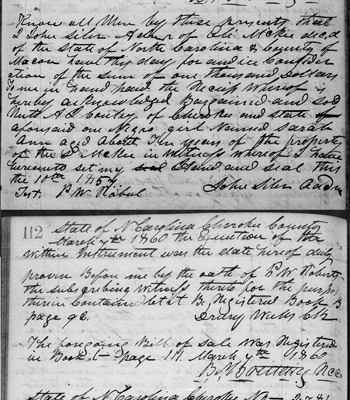 Know all Men by these presents that
I John Siler Admr of Eli McKee decd
of the State of North Carolina & County of
Macon have this day for and in Consider
ation of the sum of one thousand Dollars
to me in hand paid the Receipt Whereof is
hereby acknowledged Bargained and sold
unto A of Cherokee and state
aforesaid one Negro girl Named Sarah
Ann aged about Ten years of the property
of the Sd McKee in Witness whereof I have
hereunto set my hand and seal this
the 10th
Test. P W Roberts John Siler Admr
112 State of N Carolina Cherokee County
March 7th 1860 the Execution of the
within Instrument was the date hereof duly
proven Before me by the oath of P W Roberts
the subscribing witness thereto for the purpose
therein Contained let it B. Registered Book B
page 96. Drury Weeks Clk
The foregoing Bill of sale was Registered
in Book page 111 March 7th 1860
State of N Carolina Cherokee